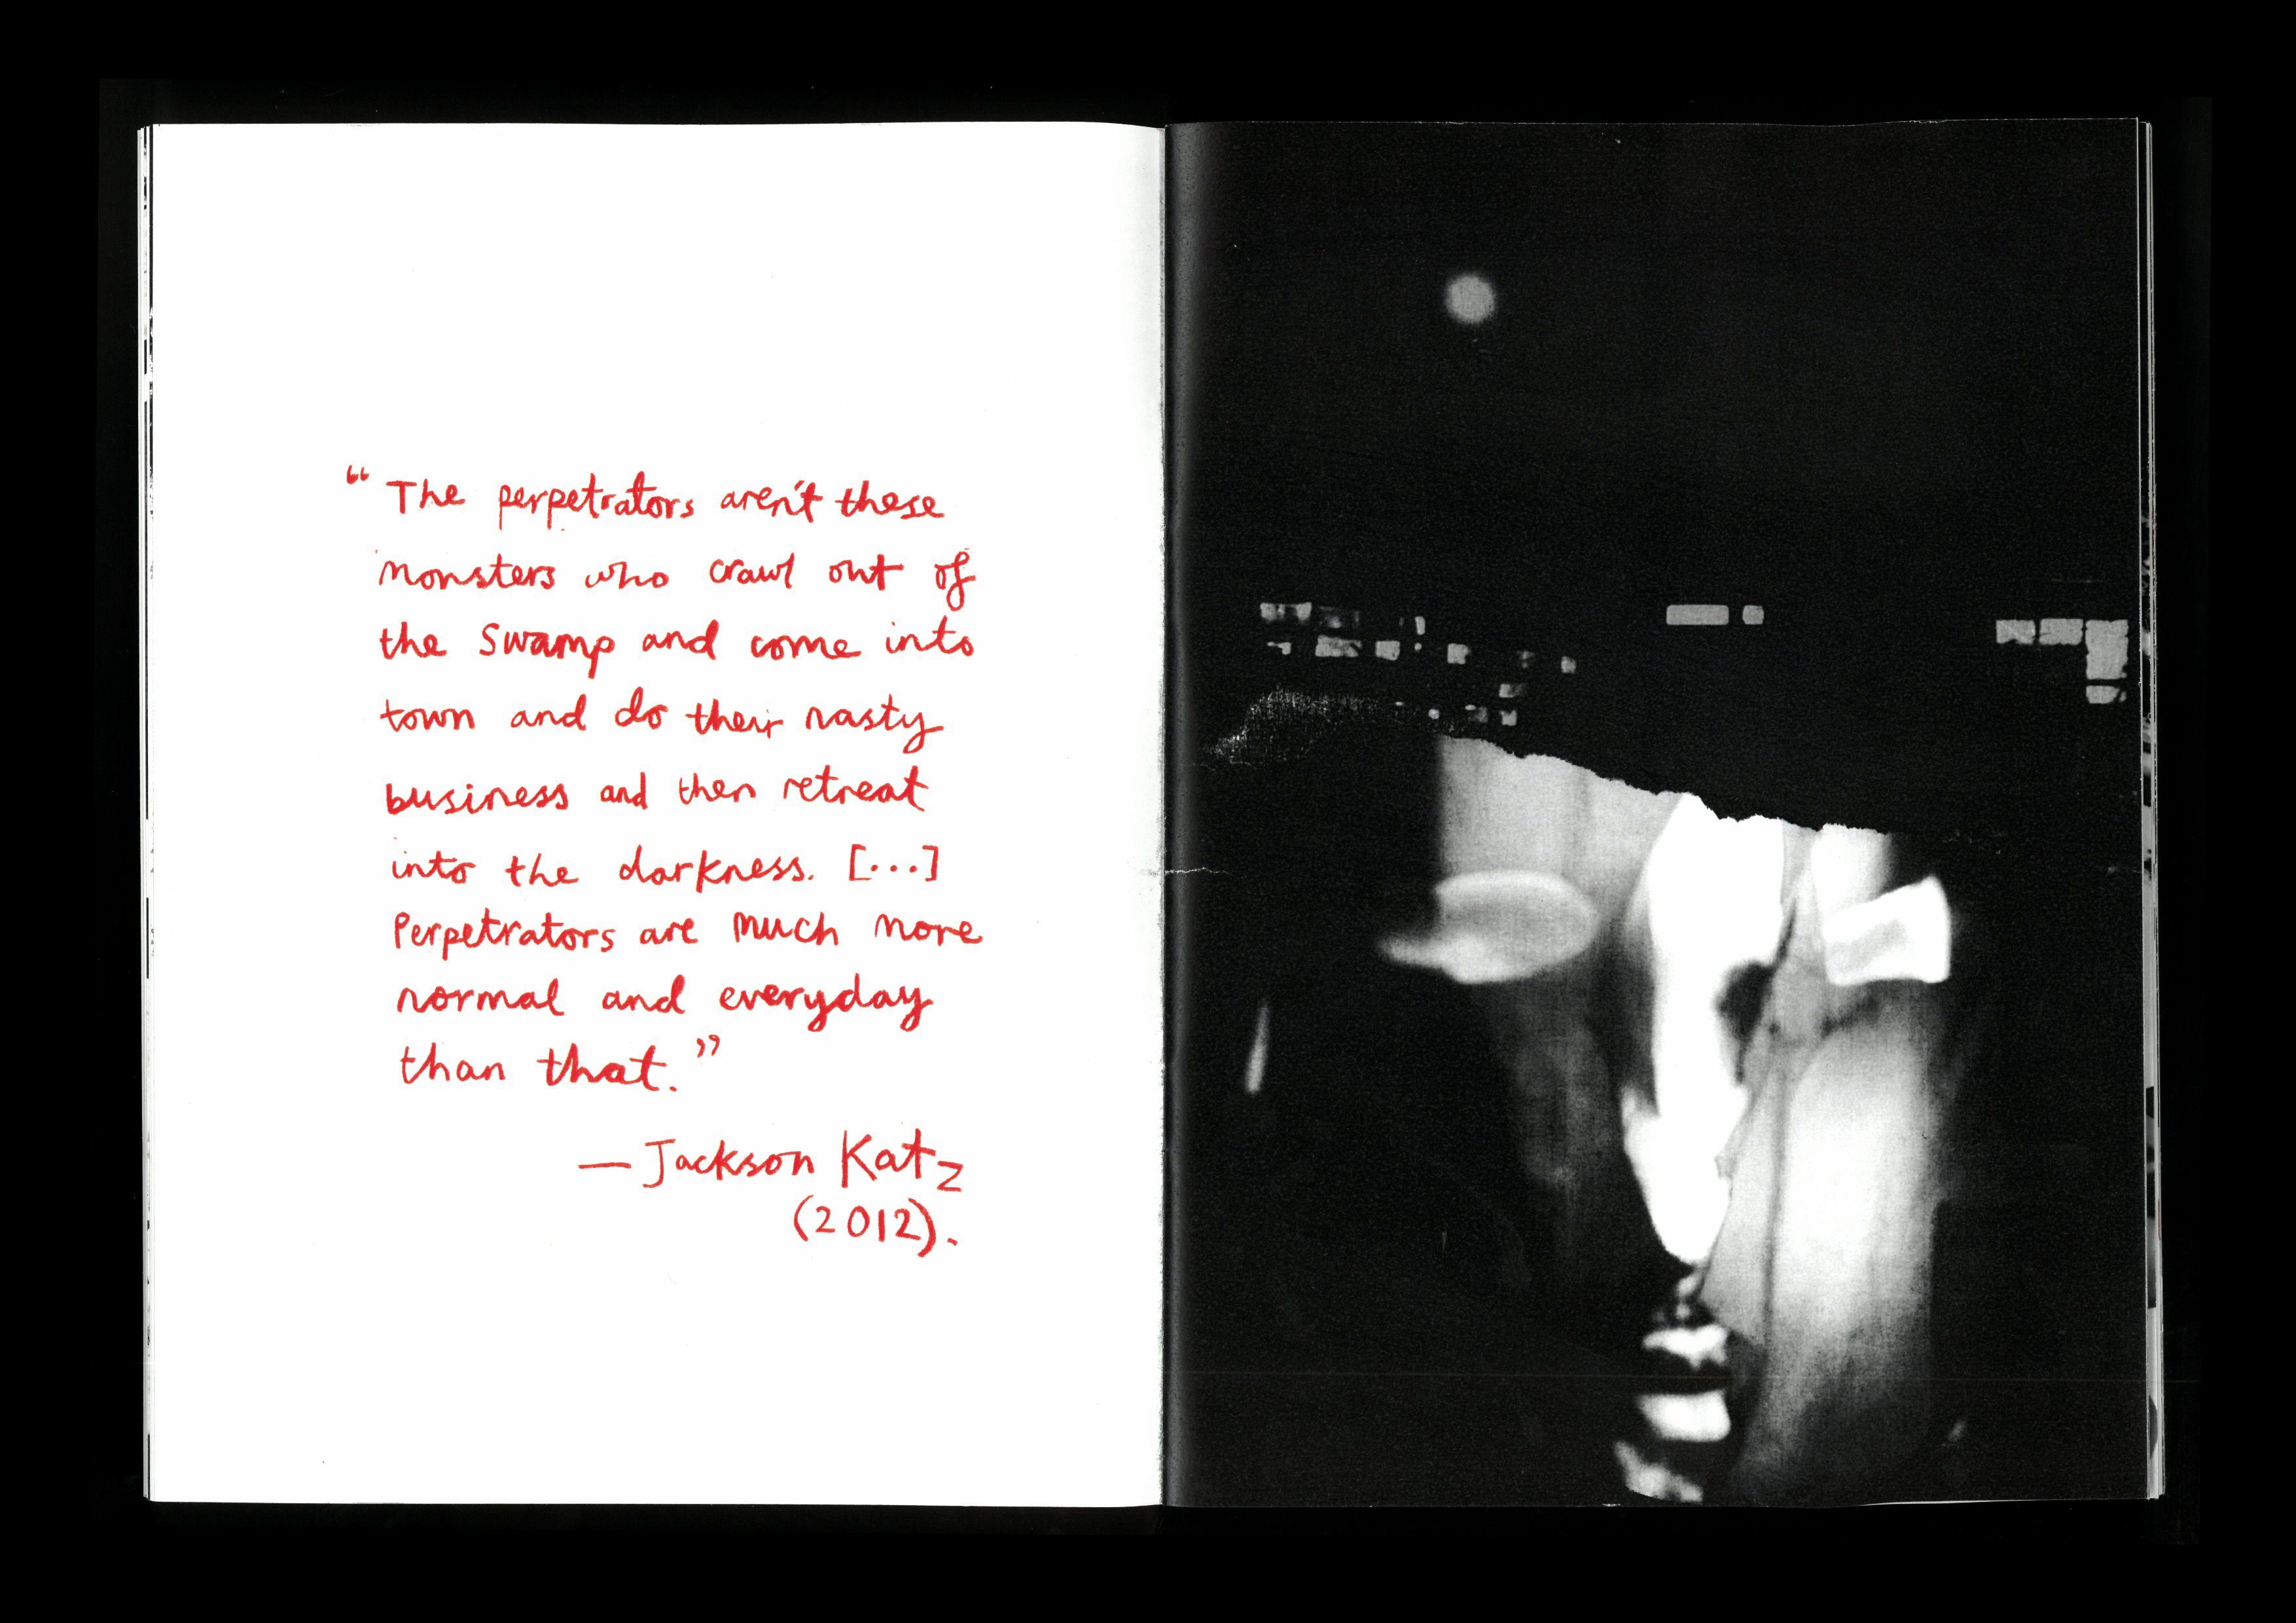 “The perpetrators aren't these
monsters who crawl out of
the swamp and come into
town and do their nasty
business and then retreat
into the darkness. [...]
Perpetrators are much more
normal and everyday
than that.”
— Jackson Katz
(2012).